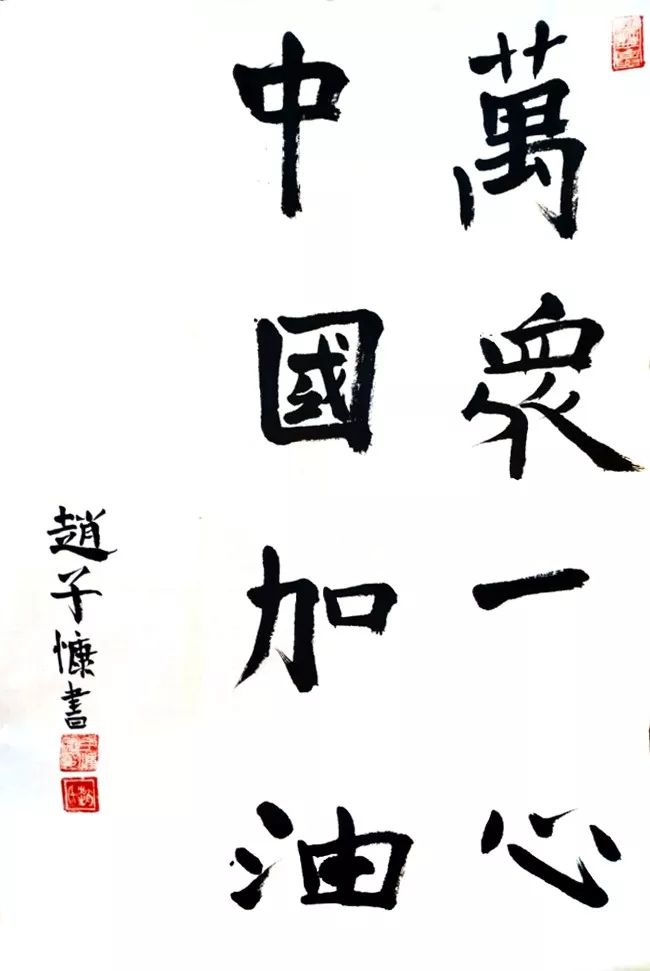 萬眾一心
中國加油
趙子慷書